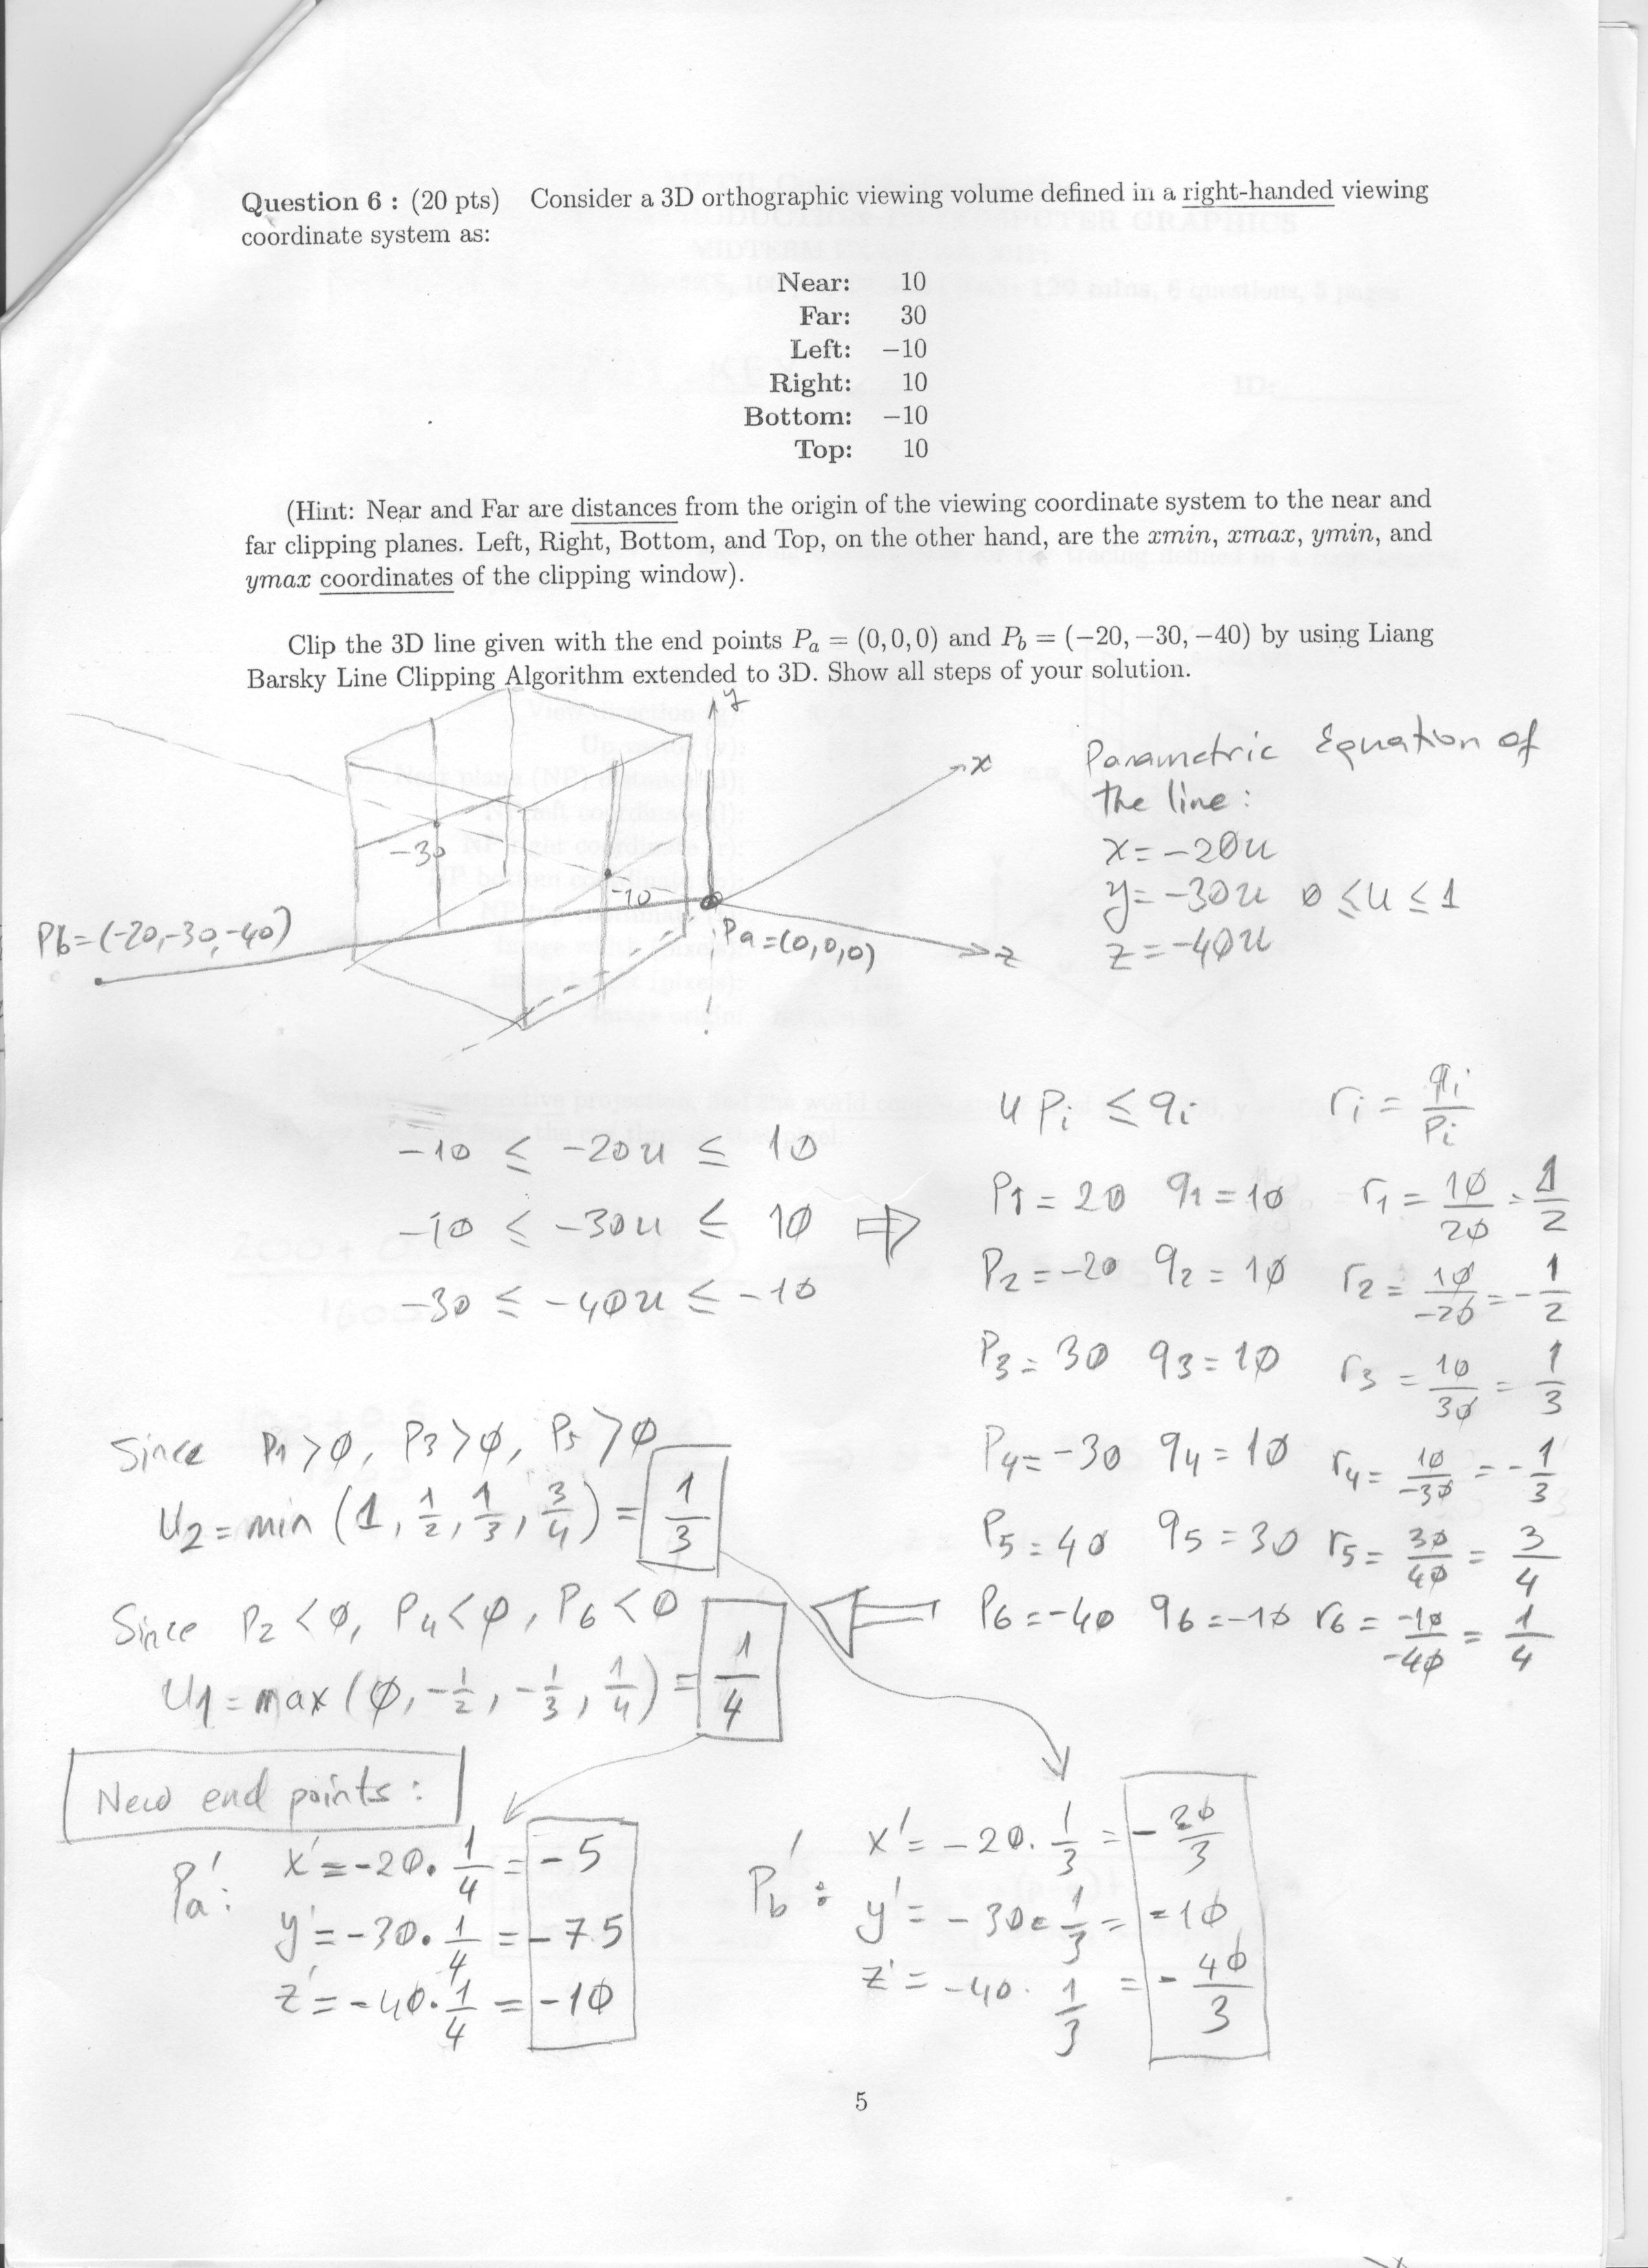 Question 6 : (20 pts) Consider a 3D orthographic viewing volume defined in a right-handed viewing
coordinate system as:
Near: 10
Far: 30
Left: −10
Right: 10
Bottom: −10
Top: 10
(Hint: Near and Far are distances from the origin of the viewing coordinate system to the near and
far clipping planes. Left, Right, Bottom, and Top, on the other hand, are the xmin, xmax, ymin, and
ymax coordinates of the clipping window).
Clip the 3D line given with the end points Pa = (0,0,0) and Pb = (−20,−30,−40) by using Liang
Barsky Line Clipping Algorithm extended to 3D. Show all steps of your solution.
y
x
z
-30
-10
Pb=(-20,-30,-40)
Pa=(0,0,0)
Parametric Equation of
the line:
x=-20u
y=-30u 0≤u≤1
z=-40u
-10 ≤ -20u ≤ 10
-10 ≤ -30u ≤ 10 ⇒
-30 ≤ -40u ≤ -10
u Pi ≤ qi ri = qi/Pi
P1=20 q1=10 r1=10/20=1/2
P2=-20 q2=10 r2=10/-20=-1/2
P3=30 q3=10 r3=10/30=1/3
P4=-30 q4=10 r4=10/-30=-1/3
P5=40 q5=30 r5=30/40=3/4
P6=-40 q6=-10 r6=-10/-40=1/4
Since P1>0, P3>0, P5>0
U2=min(1, 1/2, 1/3, 3/4)=1/3
Since P2<0, P4<0, P6<0
U1=max(0, -1/2, -1/3, 1/4)=1/4
New end points:
Pa': x'=-20.1/4=-5
y'=-30.1/4=-7.5
z'=-40.1/4=-10
Pb': x'=-20.1/3=-20/3
y'=-30.1/3=-10
z'=-40.1/3=-40/3
5